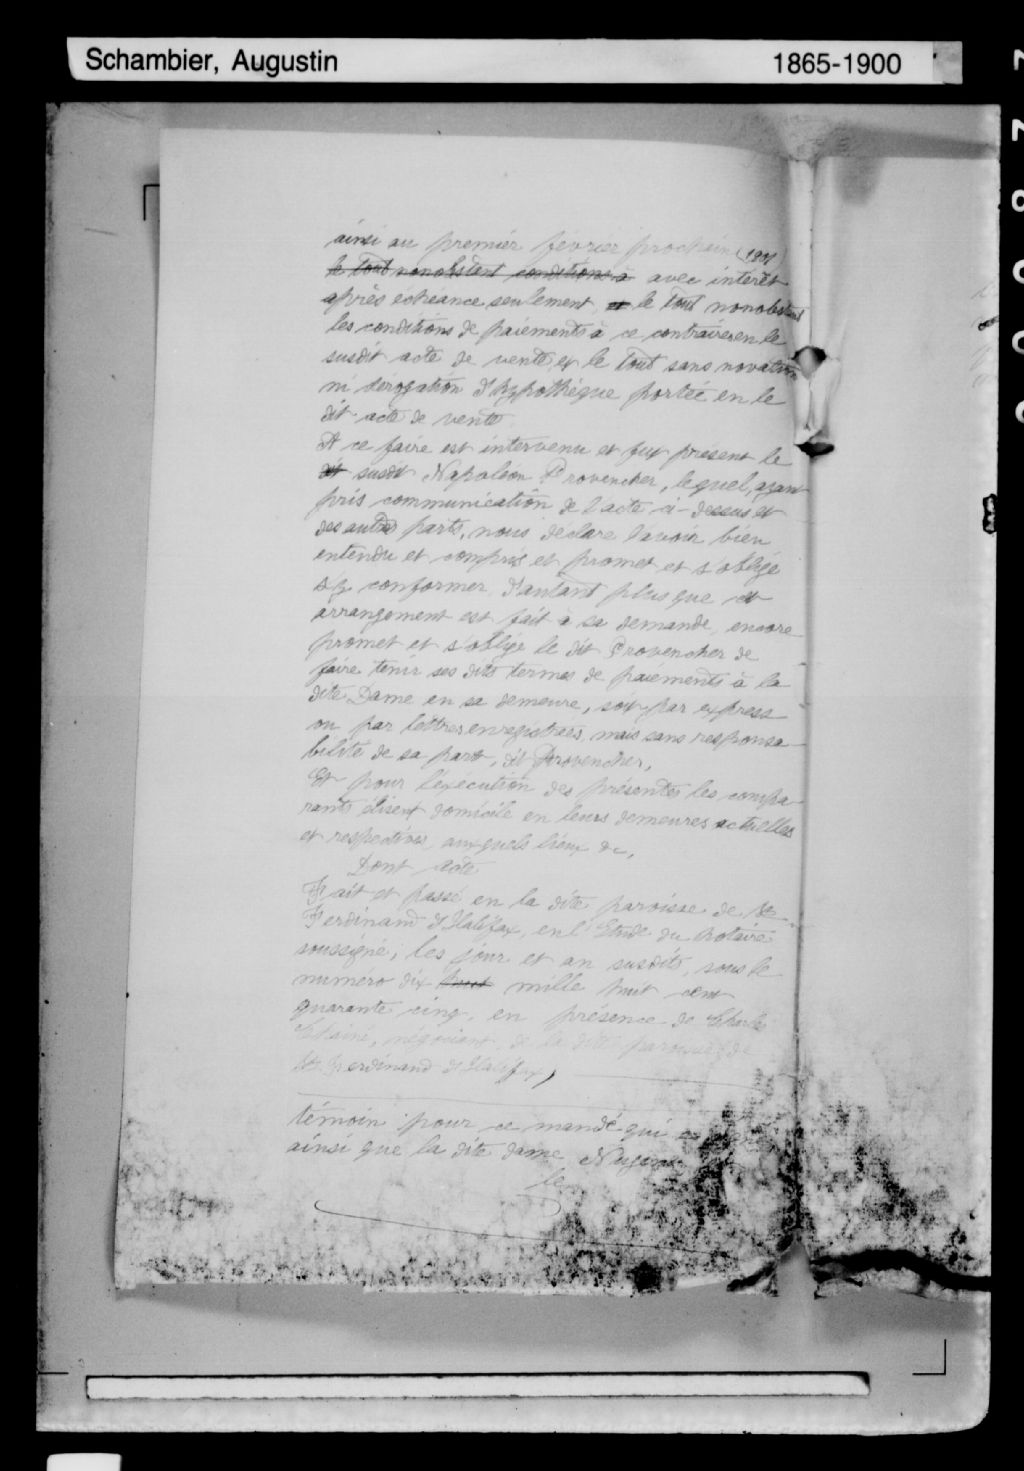 Schambier, Augustin 1865-1900
ainsi au premier février prochain (1901)
le tout nonobstant conditions à avec intérêt
après échéance seulement, et le tout nonobstant
les conditions de paiements à ce contraires en le
susdit acte de vente, et le tout sans novation
ni dérogation d'hypothèque portée en le
dit acte de vente.
A ce faire est intervenu et fut présent le
dit susdit Napoléon Provencher, lequel, ayant
pris communication de l'acte ci-dessus et
des autres parts, nous déclare l'avoir bien
entendu et compris et promet et s'oblige
s'y conformer, d'autant plus que cet
arrangement est fait à sa demande, encore
promet et s'oblige le dit Provencher de
faire tenir ses dits termes de paiements à la
dite Dame en sa demeure, soit par express
ou par lettres enregistrées, mais sans responsa-
bilité de sa part, dit Provencher,
Et pour l'exécution des présentes les compa-
rants élisent domicile en leurs demeures actuelles
et respectives auxquels lieux &c,
Dont acte
Fait et passé en la dite paroisse de St-
Ferdinand d'Halifax, en l'Etude du Notaire
soussigné, les jour et an susdits, sous le
numéro dix huit mille huit cent
quarante cinq, en présence de Charles
négociant, de la dite paroisse de
St. Ferdinand d'Halifax,
témoin pour ce mandé qui
ainsi que la dite dame